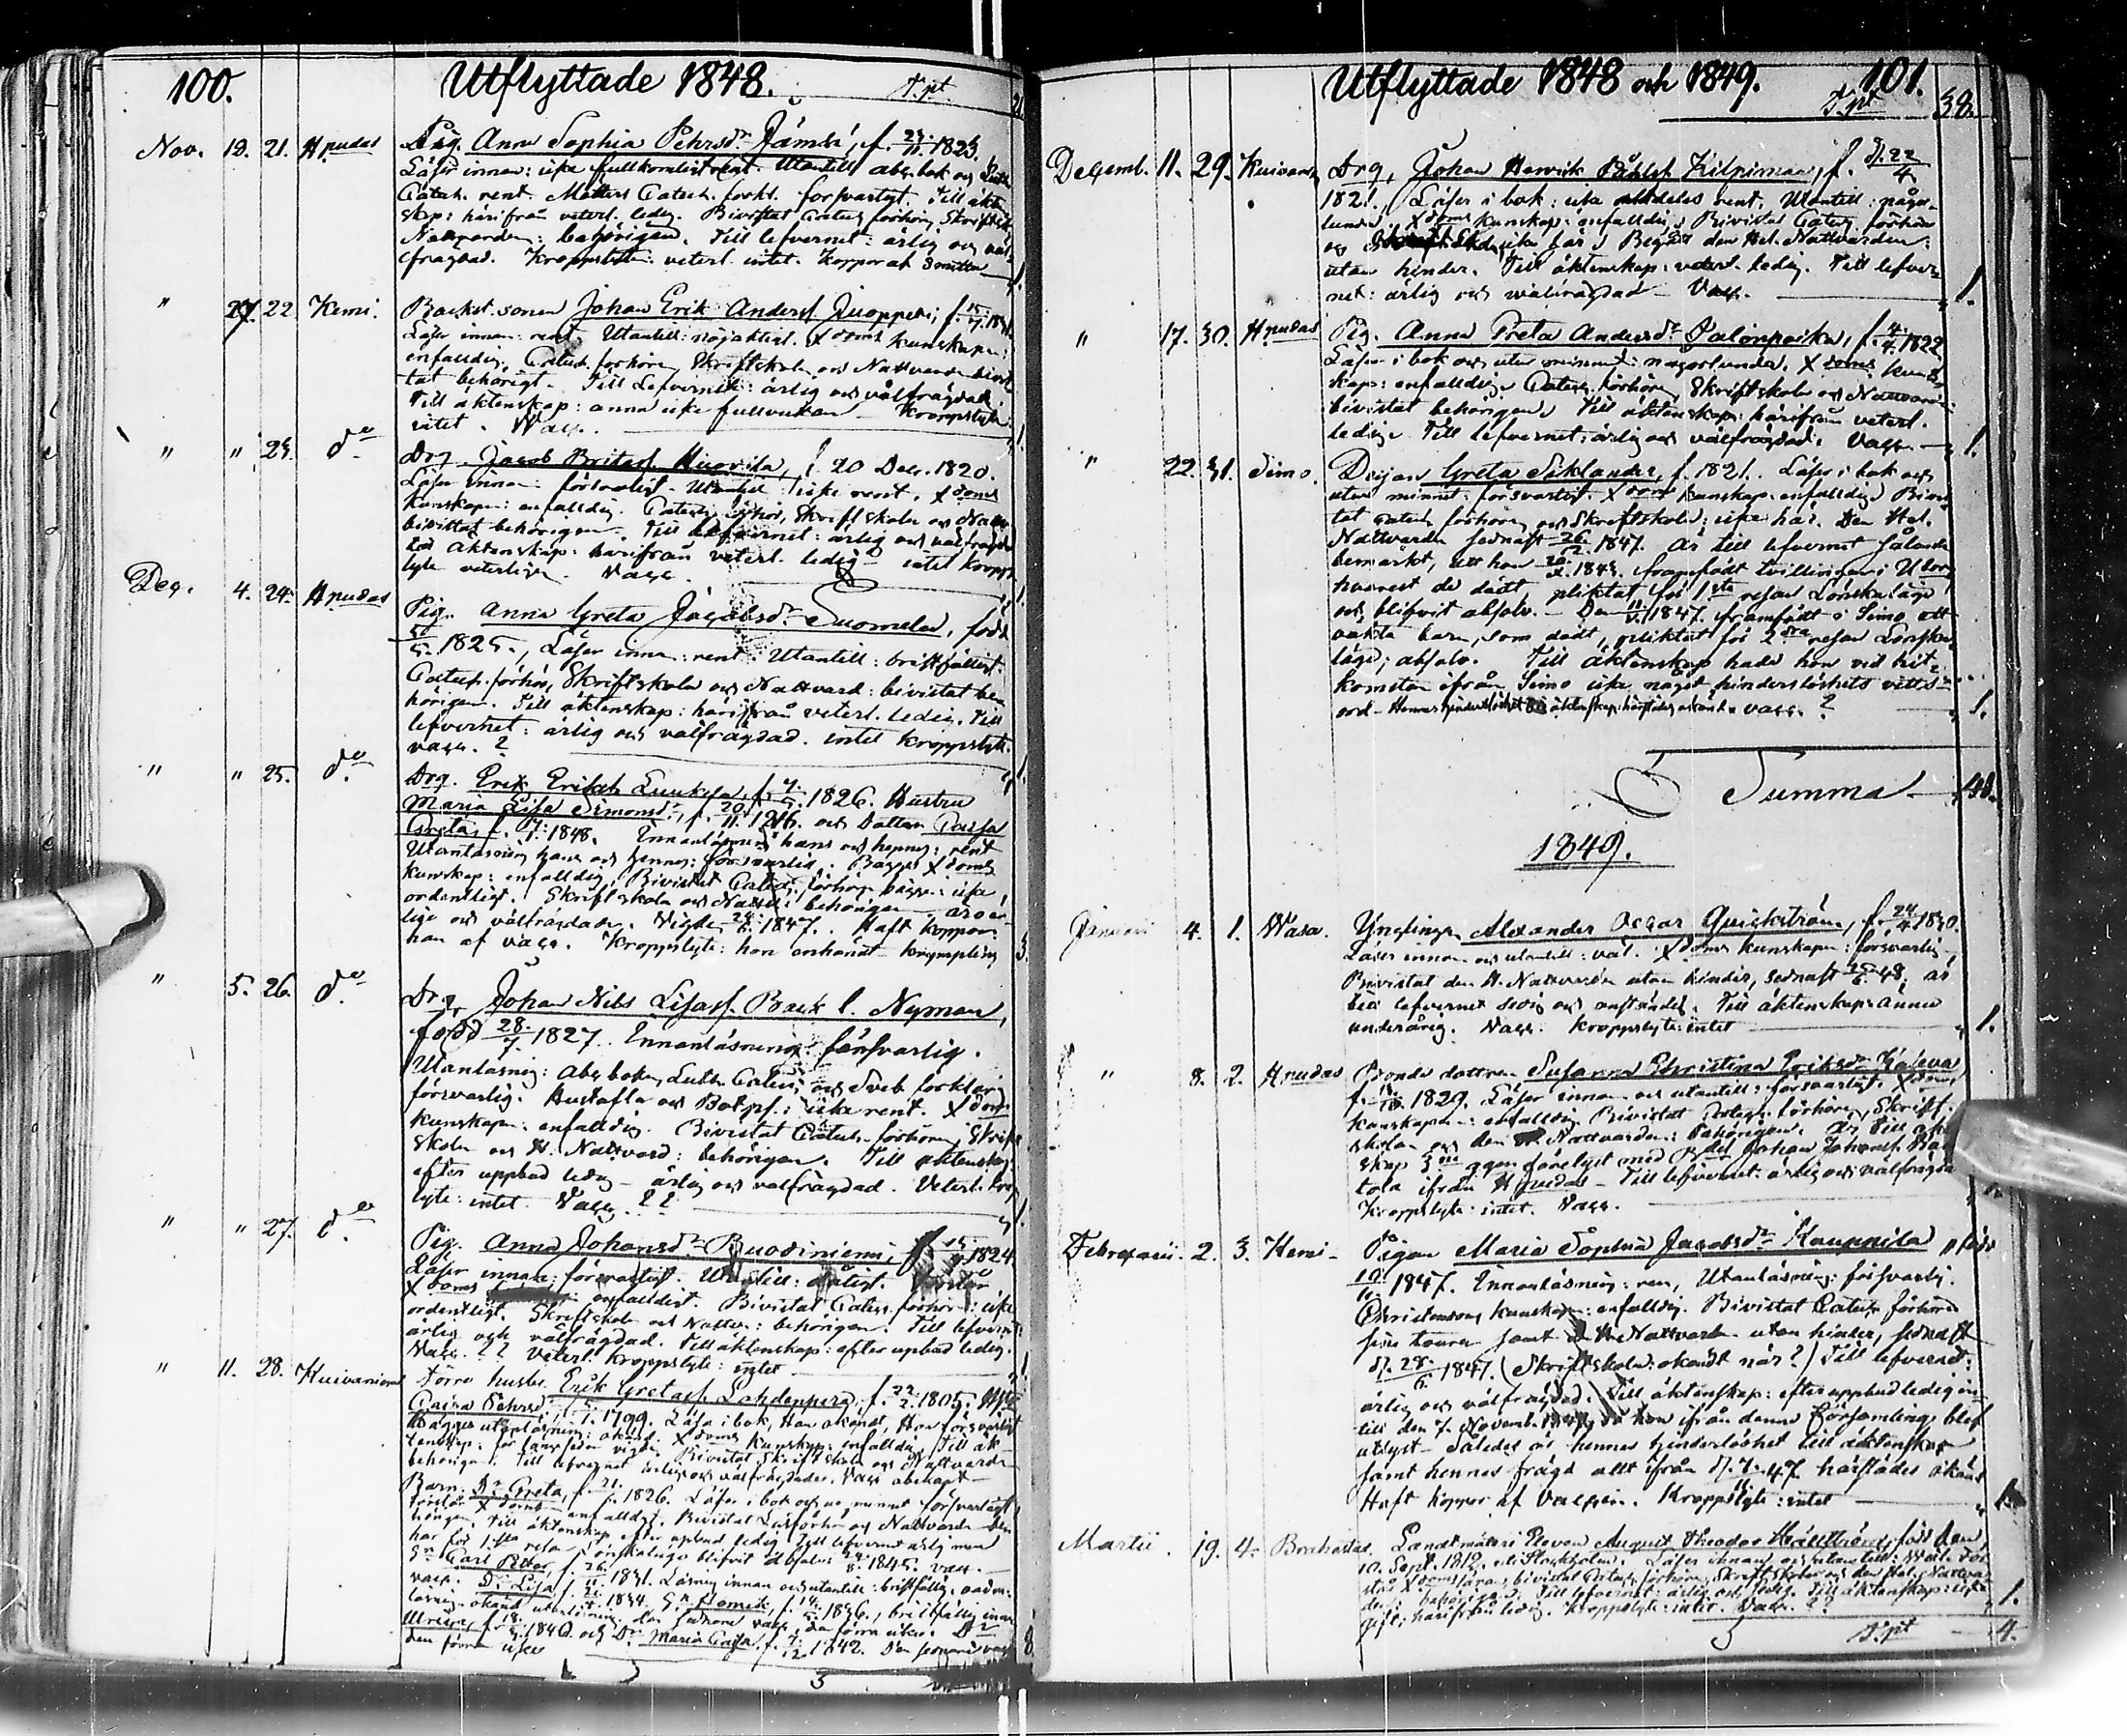 100. Utflyttade 1848. T.pt.
Nov. 18. 21. Hpudas Pig. Anna Sophia Pehrsdr Jämsä, f. 1823.
Läser innan: icke fullkomligt rent. Utantill abc bok och Luth
Catech. rent. Möllers Catech. förkl. försvarligt. Till äkten
skap: härifrån veterl. ledig. Bivistat Catech förhör, Skriftskola
Nattvarden: behörigen. Till lefvernet: ärlig och väl
frägdad. Kroppslyte: veterl. intet. Koppor af Smitta 1.
" 27. 22 Kemi. Backst. sonen Johan Erik Anders. Juopperi, f.
Läser innan: rent. Utantill: nöjaktigt. Xdoms kunskapen:
enfalldig. Catech förhör, Skriftskola och Nattvarden bivis
tat behörigt. Till Lefvernet: ärlig och välfrägdad.
Till äktenskap: ännu icke fullvuxen Kroppslyte
intet. Vacc. 1.
" " 23. do Drg. Jacob Britas. Huovila, f. 20 Dec. 1820.
Läser innan: försvarligt. Utantill: icke rent. Xdoms
kunskapen: enfalldig. Catech förhör, Skriftskola och Nattv
bivistat behörigen. Till lefvernet: ärlig och välfrägdad
Till äktenskap: härifrån veterl. ledig intet kropps
lyte veterligen. Vacc. 1.
Dec. 4. 24. Hpudas Pig. Anna Greta Jacobsdr Suomela, född
1825., Läser innan: rent. Utantill: bristfälligt.
Catech. förhör, Skriftskola och Nattvard: bivistat be
hörigen. Till äktenskap: härifrån veterl. ledig. Till
lefvernet: ärlig och välfrägdad. intet kroppslyte.
vacc. ? 1.
" " 25. do Drg. Erik Eriks. Luukela, f. 1826. Hustru
Maria Lisa Simonsdr, f. 20/11 och Dottren Caisa
Greta, f. 1848. Innanläsning hans och hennes: rent
Utanläsning hans och hennes: försvarlig. Bägges Xdoms
kunskap: enfalldig. Bivistat Catech. förhör bägge: icke
ordentligt. Skriftskola och Nattv: behörigen äro är
liga och välfrägdade. Vigde 1847. Haft koppor:
han af vacc. Kroppslyte: hon krympling 3.
" 5. 26. do Drg. Johan Nils Lisas. Back l. Nyman,
född 28/7 1827. Innanläsning: försvarlig.
Utanläsning: Abc boken, Luth. Catech. och Sveb. förklaring
försvarlig. Hustafla och Botps.: icke rent. Xdoms
kunskapen: enfalldig. Bivistat Catech. förhören, Skrift
skola och H. Nattvard: behörigen. Till äktenskap
efter uppbud ledig ärlig och välfrägdad. Veterl. kropps
lyte: intet Vacc. ?? 1.
" " 27. do Pig. Anna Johansdr Buodiniemi, f. 1824
Läser innan: försvarligt. Utantill: dåligt.
Xdoms enfalldigt. Bivistat Catech. förhör: icke
ordentligt. Skriftskola och Nattv.: behörigen. Till lefvernet
ärlig och välfrägdad. Till äktenskap: efter upbud ledig.
Vacc. ?? Veterl. kroppslyte: intet 1.
" 11. 28. Kuivaniemi Förre husb. Erik Gretas. Lohdenperä, f. 22/2 1805. H.
Caisa Pehrsdr, f. 1799. Läsa i bok, Han okändt, Hon försvarligt
Bägges utanläsning: okänd. Xdoms kunskap: enfalldig. Till äk-
tenskap: för länge sedan vigde. Bivistat Skriftskola och Nattvarden
behörigen. Till lefvernet ärliga och välfrägdade. Vacc. obekant
Barn: Dr Greta, f. 21/ 1826. Läser i bok och ur minnet försvarligt
förstår Xdoms enfalldigt. Bivistat Läsförhör och Nattvarden be
hörigen. Till äktenskap efter upbud ledig. Till lefvernet ärlig men
har för 1:sta resan Lönskaläge blifvit absolv. 1845. vacc.
Sn Carl Petter, f. 26/ 1831. Läsning innan och utantill: bristfällig.
vacc. Dr Lisa, f. 1834. Sn Henrik, f. 14/ 1836., bristfällig innan
läsning. okänd utanläsning. den förra icke. Dr
Ulrica, f. 18/ 1840. och Dr Maria Caisa, f. 1842. Den sednare vacc
den förra icke 8
101. Utflyttade 1848 och 1849. T.pt 38.
Decemb. 11. 29. Kuivan. Drg. Johan Henrik Påhls. Kilpimaa, f. d. 22/4
1821. Läser i bok: icke alldeles rent. Utantill: någor-
lunda. Xdoms kunskap: enfalldig. Bivistat Catech. förhör
och icke här. Begått den Hel. Nattvarden:
utan hinder. Till äktenskap: veterl. ledig. Till lefver-
net: ärlig och välfrägdad Vacc. 1.
" 17. 30. Hpudas Pig. Anna Greta Andersdr Palonpaska, f. 4/4 1822
Läser i bok och utur minnet: någorlunda. Xdoms kun
skap: enfalldig. Catech. förhör, Skriftskola och Nattvard
bivistat behörigen. Till äktenskap: härifrån veterl.
ledig. Till lefvernet: ärlig och välfrägdad. Vacc. 1.
" 22. 31. Simo. Pigan Greta Seklander, f. 1821. Läser i bok och
utur minnet försvarligt. Xdoms kunskap enfalldig. Bivis
tat Catech. förhören och Skriftskola: icke här. Den Hel.
Nattvarden sednast 26/ 1847. Är till lefvernet sålunda
bemärkt, att hon 1843. framfödt tvillingar i Uleåborg
hvarest de dödt, pliktat för 1sta resan Lönskaläge
och blifvit absolv. Den 11/ 1847. framfödt i Simo ett
oäkta barn, som dödt, pliktat för 2dra resan Lönska
läge; absolv. Till äktenskap hade hon vid hit-
komsten ifrån Simo icke något hinderslöshets vitts-
ord. Hennes hinderslöshet till äktenskap: härstädes okänd. vacc. ? 1.
Summa 48.
1849.
Januarii 4. 1. Wasa. Ynglingen Alexander Oscar Quickström, f. 24/4 1830.
Läser innan och utantill: väl. Xdoms kunskapen: försvarlig.
Bivistat den H. Nattvarden utan hinder, sednast 48; är
till lefvernet sedig och anständig. Till äktenskap: ännu
underårig. Vacc. Kroppslyte: intet 1.
" 8. 2. Hpudas Bonde dottren Susanna Christina Eriksdr Kaleva
f. 1829. Läser innan och utantill: försvarligt. Xdoms
kunskapen: enfalldig. Bivistat Catech. förhören, Skrift-
skola och den Nattvarden: behörigen. Är till äkten
skap 3ne ggr förelyst med Johan Johans.
tola ifrån Hpudas. Till lefvernet: ärlig och välfrägdad
Kroppslyte: intet. Vacc.
Februarii. 2. 3. Kemi Pigan Maria Sophia Jacobsdr Kaupnila, född
19/ 1847. Innanläsning: ren, Utanläsning: försvarlig.
Christendoms kunskapen: enfalldig. Bivistat Catech förhören
samt H. Nattvarden utan hinder, sednast
d. 28/ 1847. (Skriftskola: okändt när?) Till lefvernet:
ärlig och välfrägdad. Till äktenskap: efter uppbud ledig in-
till den 7. Novemb. då hon ifrån denna församling blef
utlyst. Således är hennes hinderslöshet till äktenskap
samt hennes frägd allt ifrån d. 47 härstädes okänd
Haft koppor af Vaccin. Kroppslyte: intet 1.
Martii. 19. 4. Brahestad. Landtmäteri Eleven August Theodor Hällström, född den
10. Sept. i Stockholm. Läser innan och utantill: väl. För
står Xdoms lära, bivistat Catech. förhören, Skriftskolan och den Hel. Nattvar
den: behörigen. Till lefvernet: ärlig och sedig. Till äktenskap: icke
gift, härifrån ledig. Kroppslyte: intet. Vacc. ?? 1.
T.pt 4.